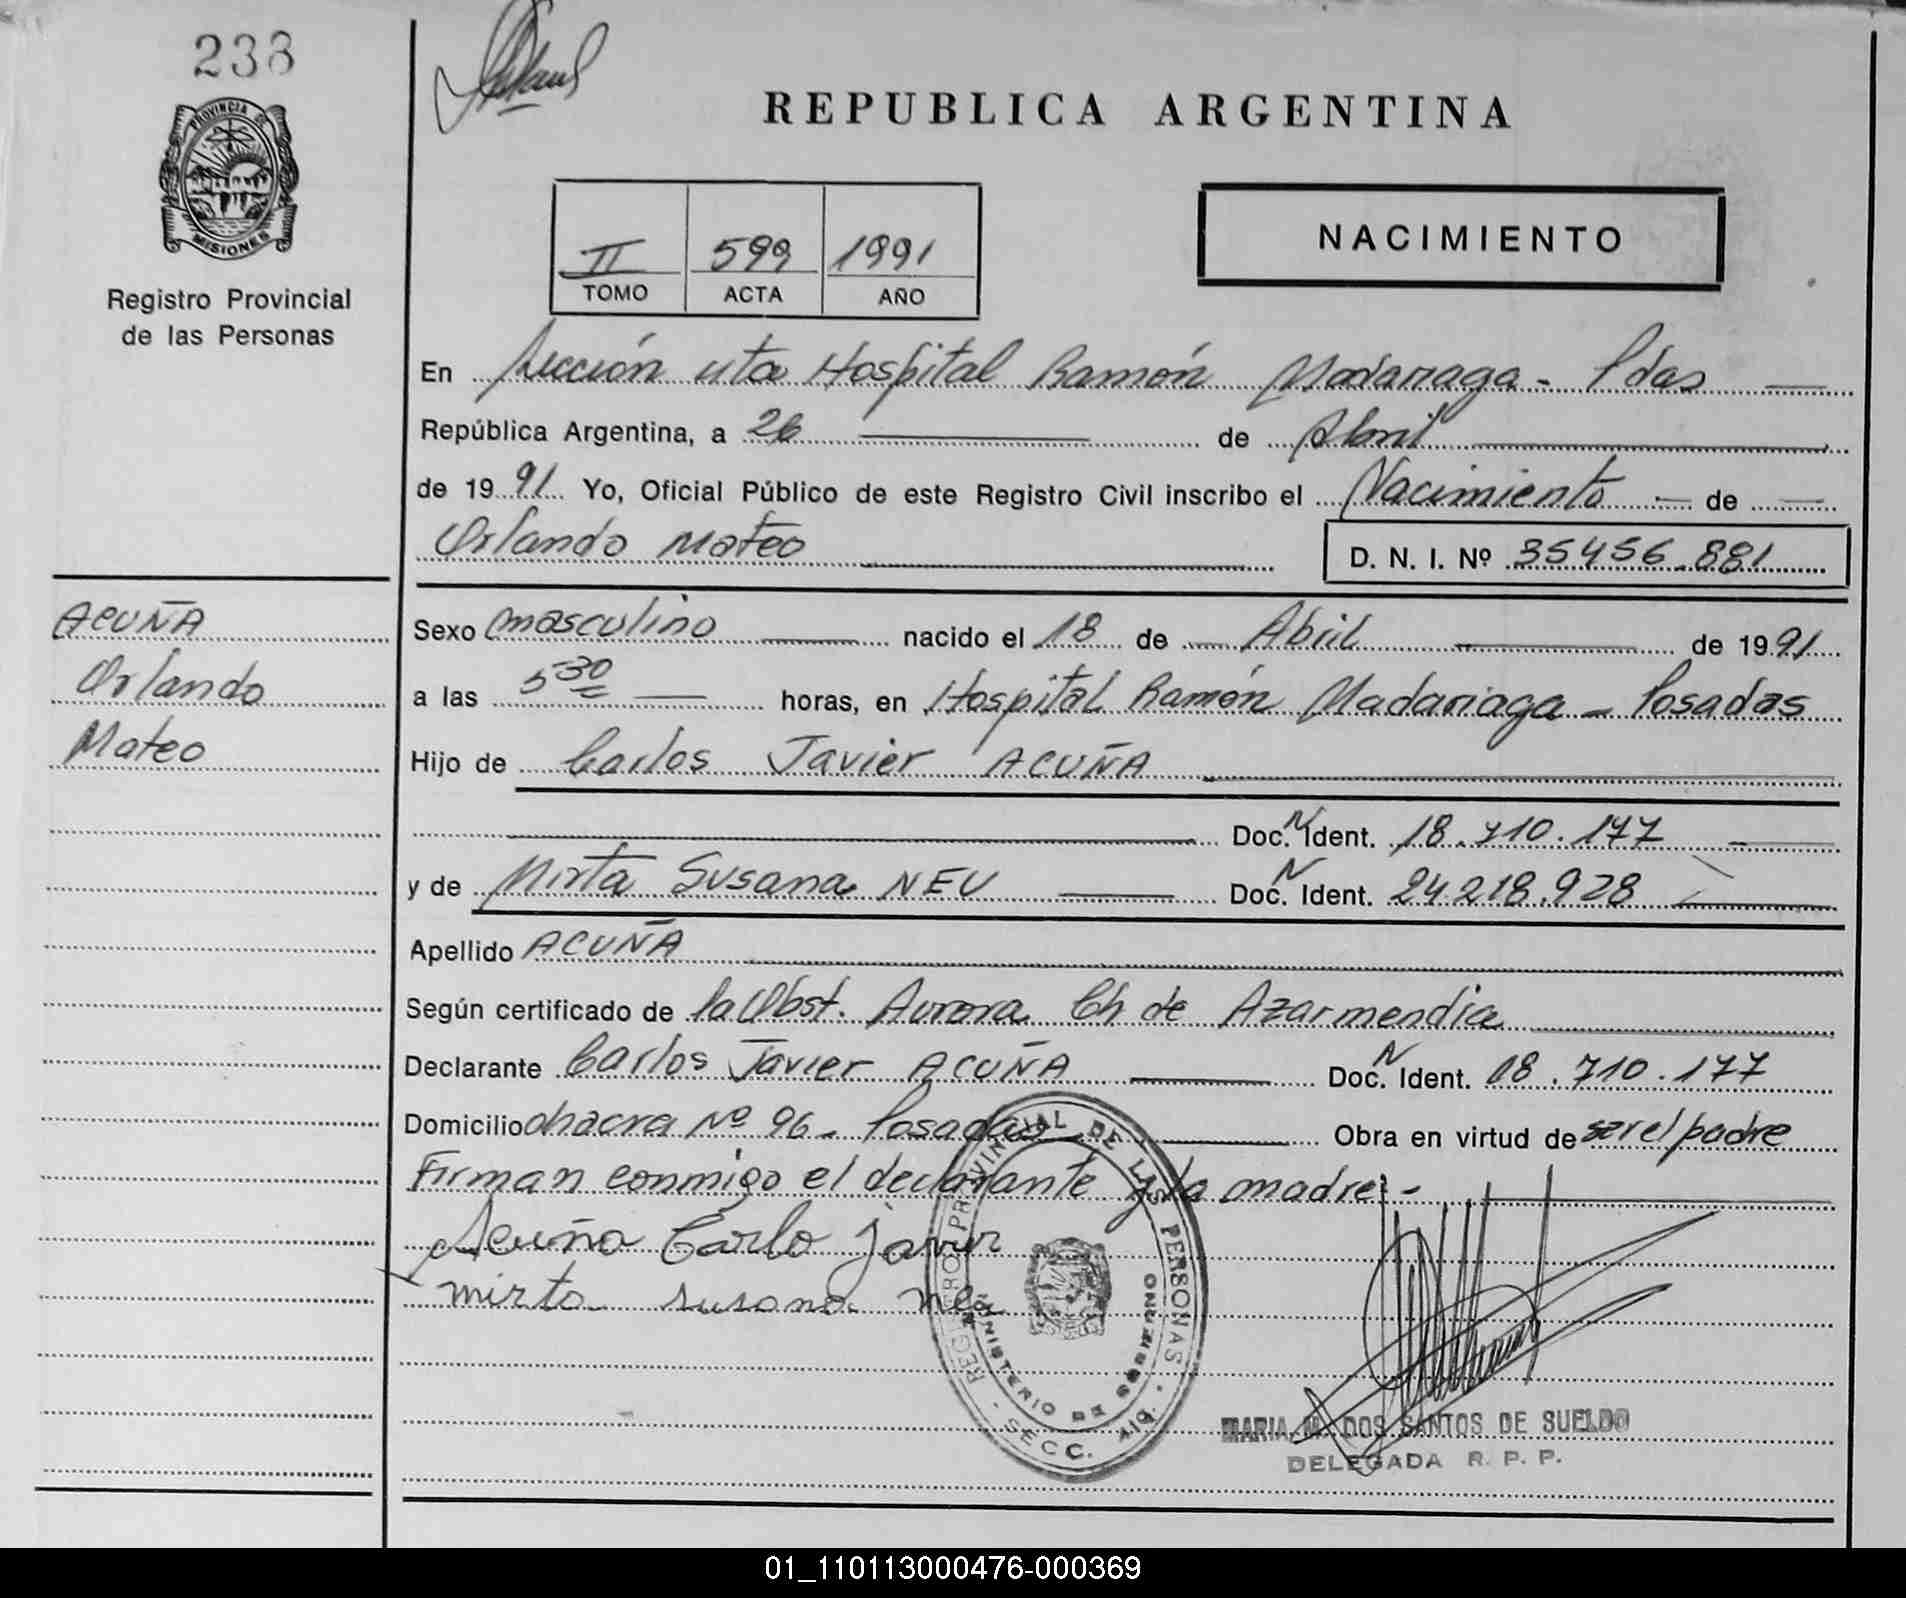 238
PROVINCIA DE
MISIONES
Registro Provincial
de las Personas
REPUBLICA ARGENTINA
II 599 1991
TOMO ACTA AÑO
NACIMIENTO
En Sección 4ta Hospital Ramón Madariaga - Pdas
República Argentina, a 26 de Abril
de 1991 Yo, Oficial Público de este Registro Civil inscribo el Nacimiento de
Orlando Mateo
D. N. I. Nº 35456.881
ACUÑA
Orlando
Mateo
Sexo masculino nacido el 18 de Abril de 1991
a las 5 30 horas, en Hospital Ramón Madariaga - Posadas
Hijo de Carlos Javier ACUÑA
Doc. N Ident. 18.710.177
y de Mirta Susana NEU Doc. N Ident. 24.218.928
Apellido ACUÑA
Según certificado de la Obst. Aurora Ch de Azarmendia
Declarante Carlos Javier ACUÑA Doc. N Ident. 18.710.177
Domicilio chacra Nº 96 - Posadas Obra en virtud de ser el padre
Firman conmigo el declarante y la madre. -
Acuña Carlo Javier
mirta susana neu
REGISTRO PROVINCIAL DE LAS PERSONAS
MINISTERIO DE GOBIERNO
SECC. 4ta.
MARIA M. DOS SANTOS DE SUELDO
DELEGADA R. P. P.
01_110113000476-000369